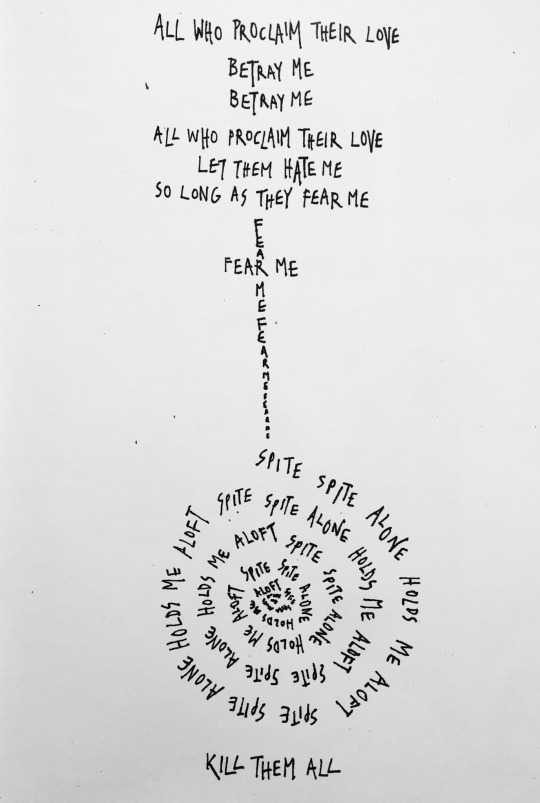 ALL WHO PROCLAIM THEIR LOVE
BETRAY ME
BETRAY ME
ALL WHO PROCLAIM THEIR LOVE
LET THEM HATE ME
SO LONG AS THEY FEAR ME
FEAR ME FEAR ME FEAR ME
FEAR ME
SPITE SPITE ALONE HOLDS ME ALOFT SPITE SPITE ALONE HOLDS ME ALOFT SPITE SPITE ALONE HOLDS ME ALOFT SPITE SPITE ALONE HOLDS ME ALOFT SPITE SPITE ALONE HOLDS ME ALOFT SPITE SPITE ALONE HOLDS ME ALOFT
KILL THEM ALL